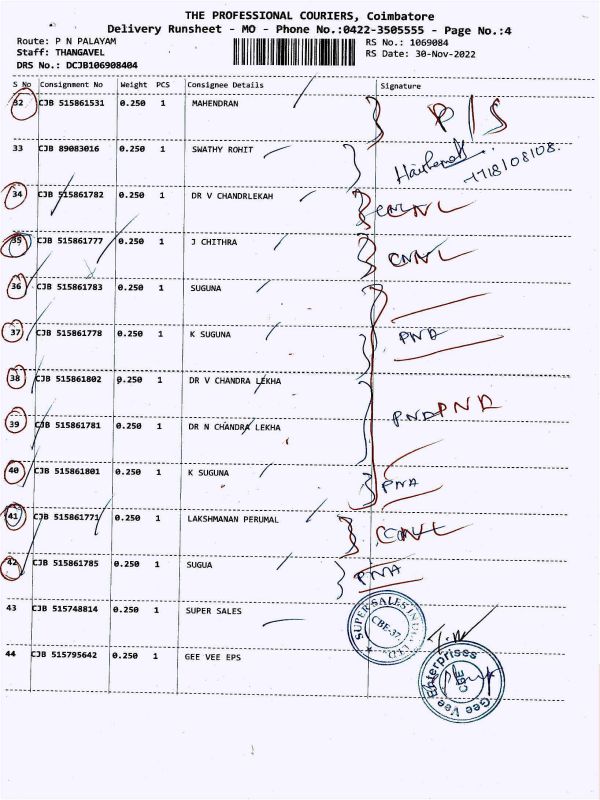 THE PROFESSIONAL COURIERS, Coimbatore
Delivery Runsheet - MO - Phone No.:0422-3505555 - Page No.:4
Route: P N PALAYAM RS No.: 1069084
Staff: THANGAVEL RS Date: 30-Nov-2022
DRS No.: DCJB106908404
S No Consignment No Weight PCS Consignee Details Signature
32 CJB 515861531 0.250 1 MAHENDRAN P/S
33 CJB 89083016 0.250 1 SWATHY ROHIT
34 CJB 515861782 0.250 1 DR V CHANDRLEKAH CNL
35 CJB 515861777 0.250 1 J CHITHRA CNNL
36 CJB 515861783 0.250 1 SUGUNA
37 CJB 515861778 0.250 1 K SUGUNA PNA
38 CJB 515861802 0.250 1 DR V CHANDRA LEKHA
PNA PNA
39 CJB 515861781 0.250 1 DR N CHANDRA LEKHA
40 CJB 515861801 0.250 1 K SUGUNA PNA
41 CJB 515861771 0.250 1 LAKSHMANAN PERUMAL
42 CJB 515861785 0.250 1 SUGUA PNA
43 CJB 515748814 0.250 1 SUPER SALES
SUPER SALES INDIA LTD
CBE-37
44 CJB 515795642 0.250 1 GEE VEE EPS
Gee Vee Enterprises
CBE